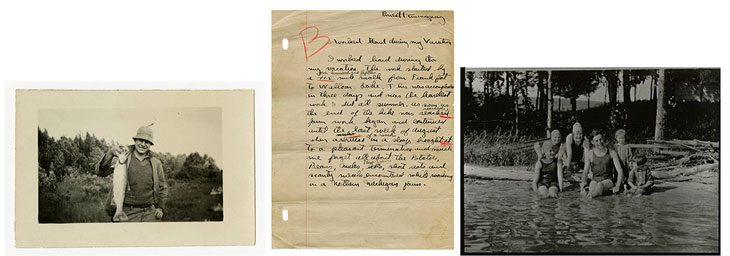 Ernest Hemingway
B
I worked Hard during my Vacation
I worked hard during the
my vacation. The work started by
one hundred and
a mile walk from Frankfort
to Walloon Lake. This was accomplished
in three days and was the hardest
work I did all summer. As soon as
the end of the hike was reached
farm work began and continued
until the last week of August
when in a sloop brought it
to a pleasant termination and made
me forget all about the Potatoes,
Beans, and
scanty meals encountered while working
in a Northern Michigan farm.